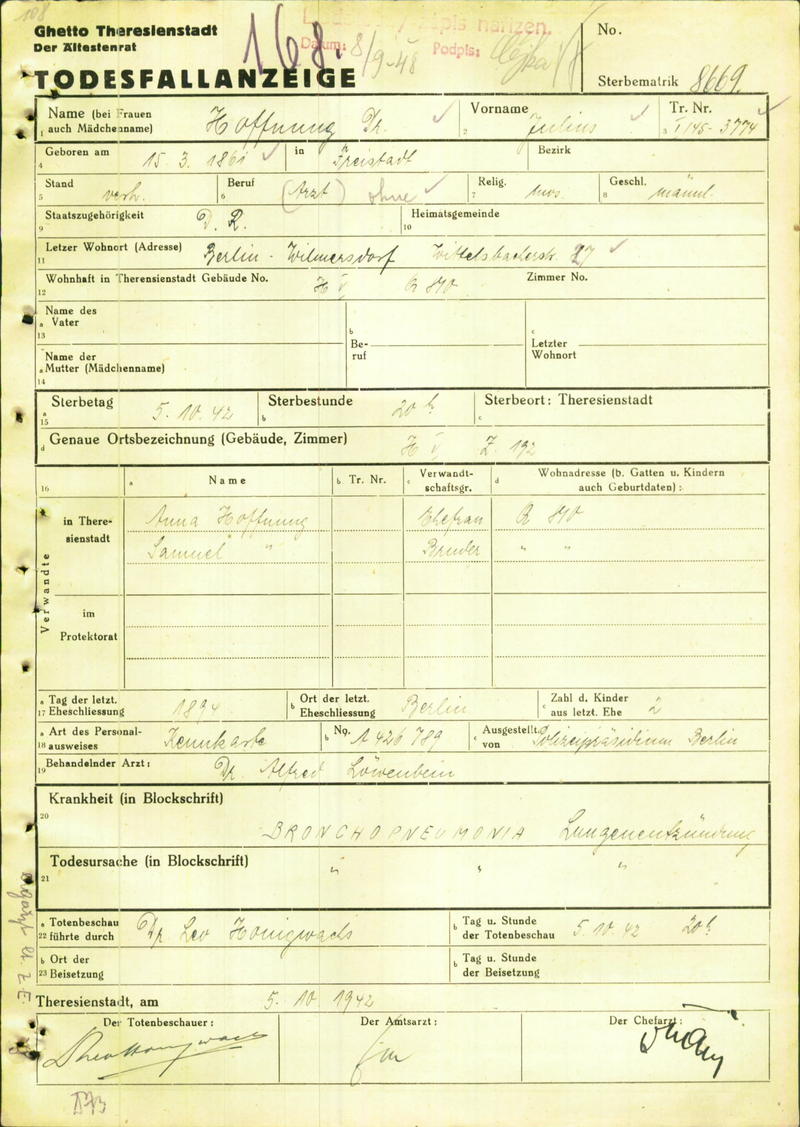 108
Ghetto Theresienstadt
Der Ältestenrat
TODESFALLANZEIGE
168.
Datum: 8/9-48 Podpis:
No.
Sterbematrik 8669.
Name (bei Frauen auch Mädchenname) Hoffnung Dr. Vorname Julius Tr. Nr. I/45-3774
1 2 3
Geboren am 15.3.1861 in Freistadt Bezirk
4
Stand verh. Beruf (Arzt) ohne Relig. mos. Geschl. männl.
5 6 7 8
Staatszugehörigkeit D. R. Heimatsgemeinde
9 10
Letzer Wohnort (Adresse) Berlin - Wilmersdorf Wittelsbacherstr. 27
11
Wohnhaft in Therensienstadt Gebäude No. H V Q 410 Zimmer No.
12
Name des Vater
a 13
b Beruf
c Letzter Wohnort
Name der Mutter (Mädchenname)
a 14
Sterbetag 5. 10. 42 Sterbestunde 20 h Sterbeort: Theresienstadt
a 15 b c
d Genaue Ortsbezeichnung (Gebäude, Zimmer) H V Z. 192
16 a Name b Tr. Nr. c Verwandtschaftsgr. d Wohnadresse (b. Gatten u. Kindern auch Geburtdaten):
Verwandte
in Theresienstadt
Anna Hoffnung Ehefrau Q 410
Samuel " Bruder " "
im Protektorat
a 17 Tag der letzt. Eheschliessung 1894 b Ort der letzt. Eheschliessung Berlin c Zahl d. Kinder aus letzt. Ehe 2
a 18 Art des Personalausweises Kennkarte b No. A 426 789 c Ausgestellt von Polizeipräsidium Berlin
19 Behandelnder Arzt: Dr. Alfred Löwenbein
Krankheit (in Blockschrift)
20 BRONCHOPNEUMONIA Lungenentzündung
Todesursache (in Blockschrift)
21 " " "
a 22 Totenbeschau führte durch Dr. Leo Honigwachs b Tag u. Stunde der Totenbeschau 5.10.42 20 h
b 23 Ort der Beisetzung b Tag u. Stunde der Beisetzung
Theresienstadt, am 5. 10. 1942
Der Totenbeschauer: Der Amtsarzt: Der Chefarzt: